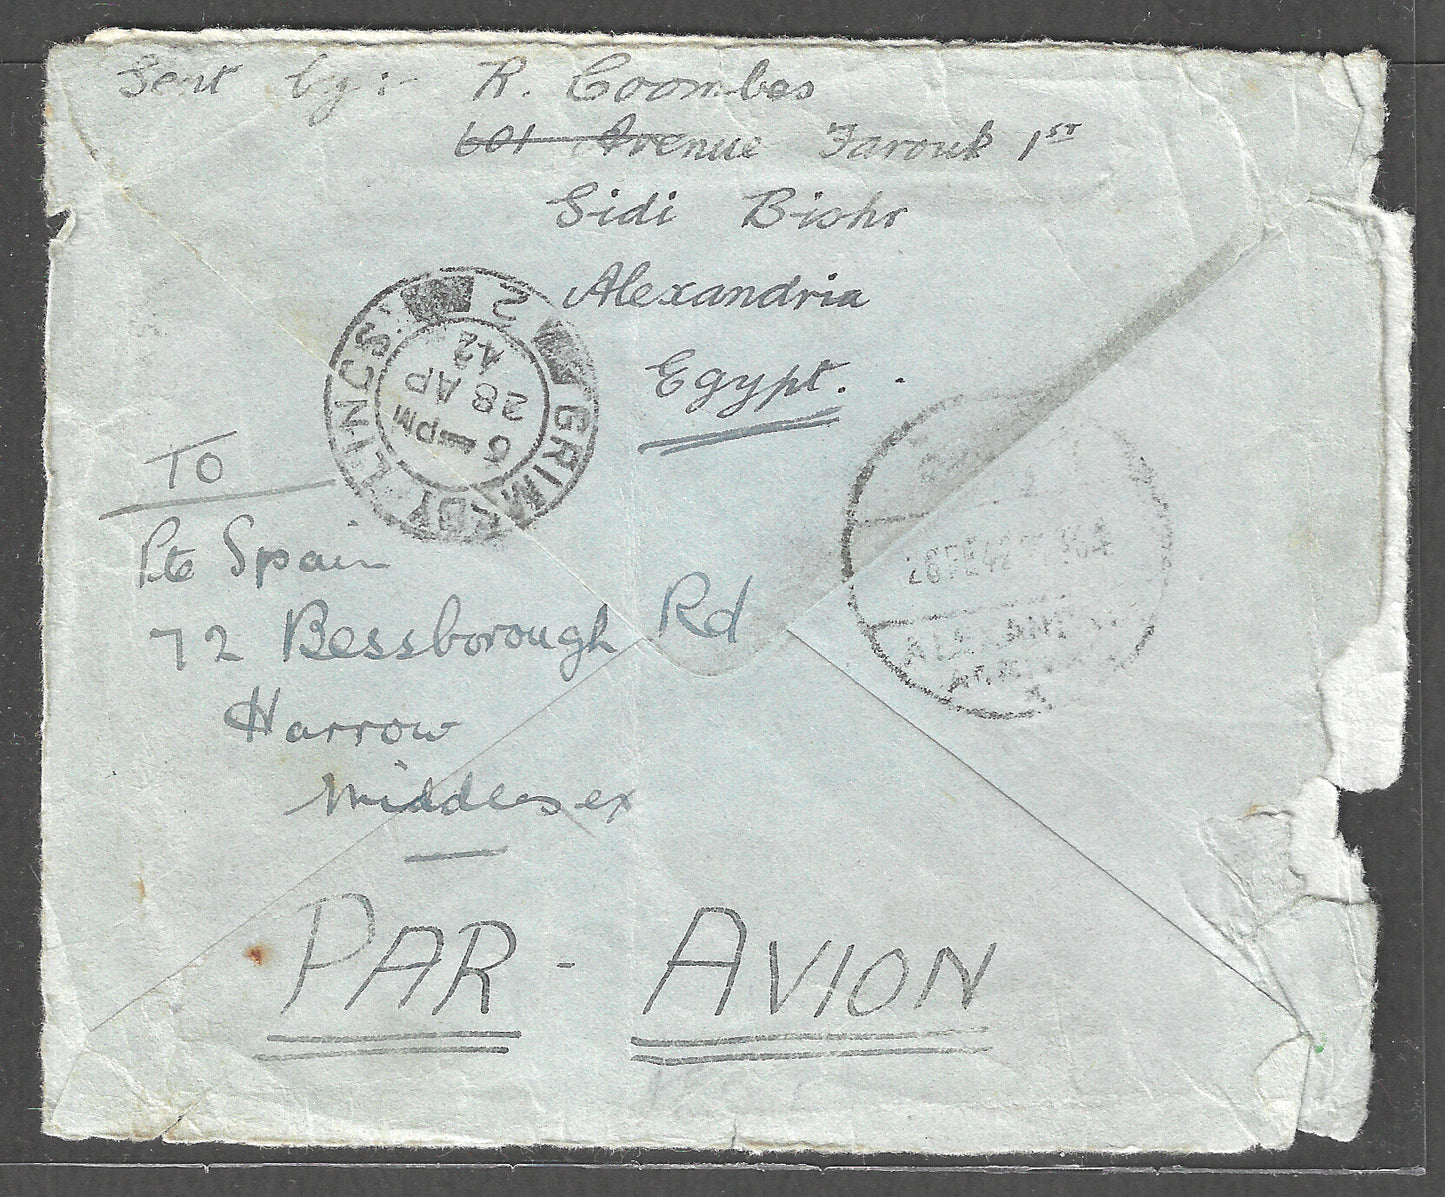 Sent by:- R. Coombes
601 Avenue Farouk 1ST
Sidi Bishr
Alexandria
Egypt.
GRIMSBY LINCS. 2
6 PM
28 AP
42
TO
Pte Spain
72 Bessborough Rd
Harrow
Middlesex
28 FE 42
ALEXANDRIA
PAR - AVION